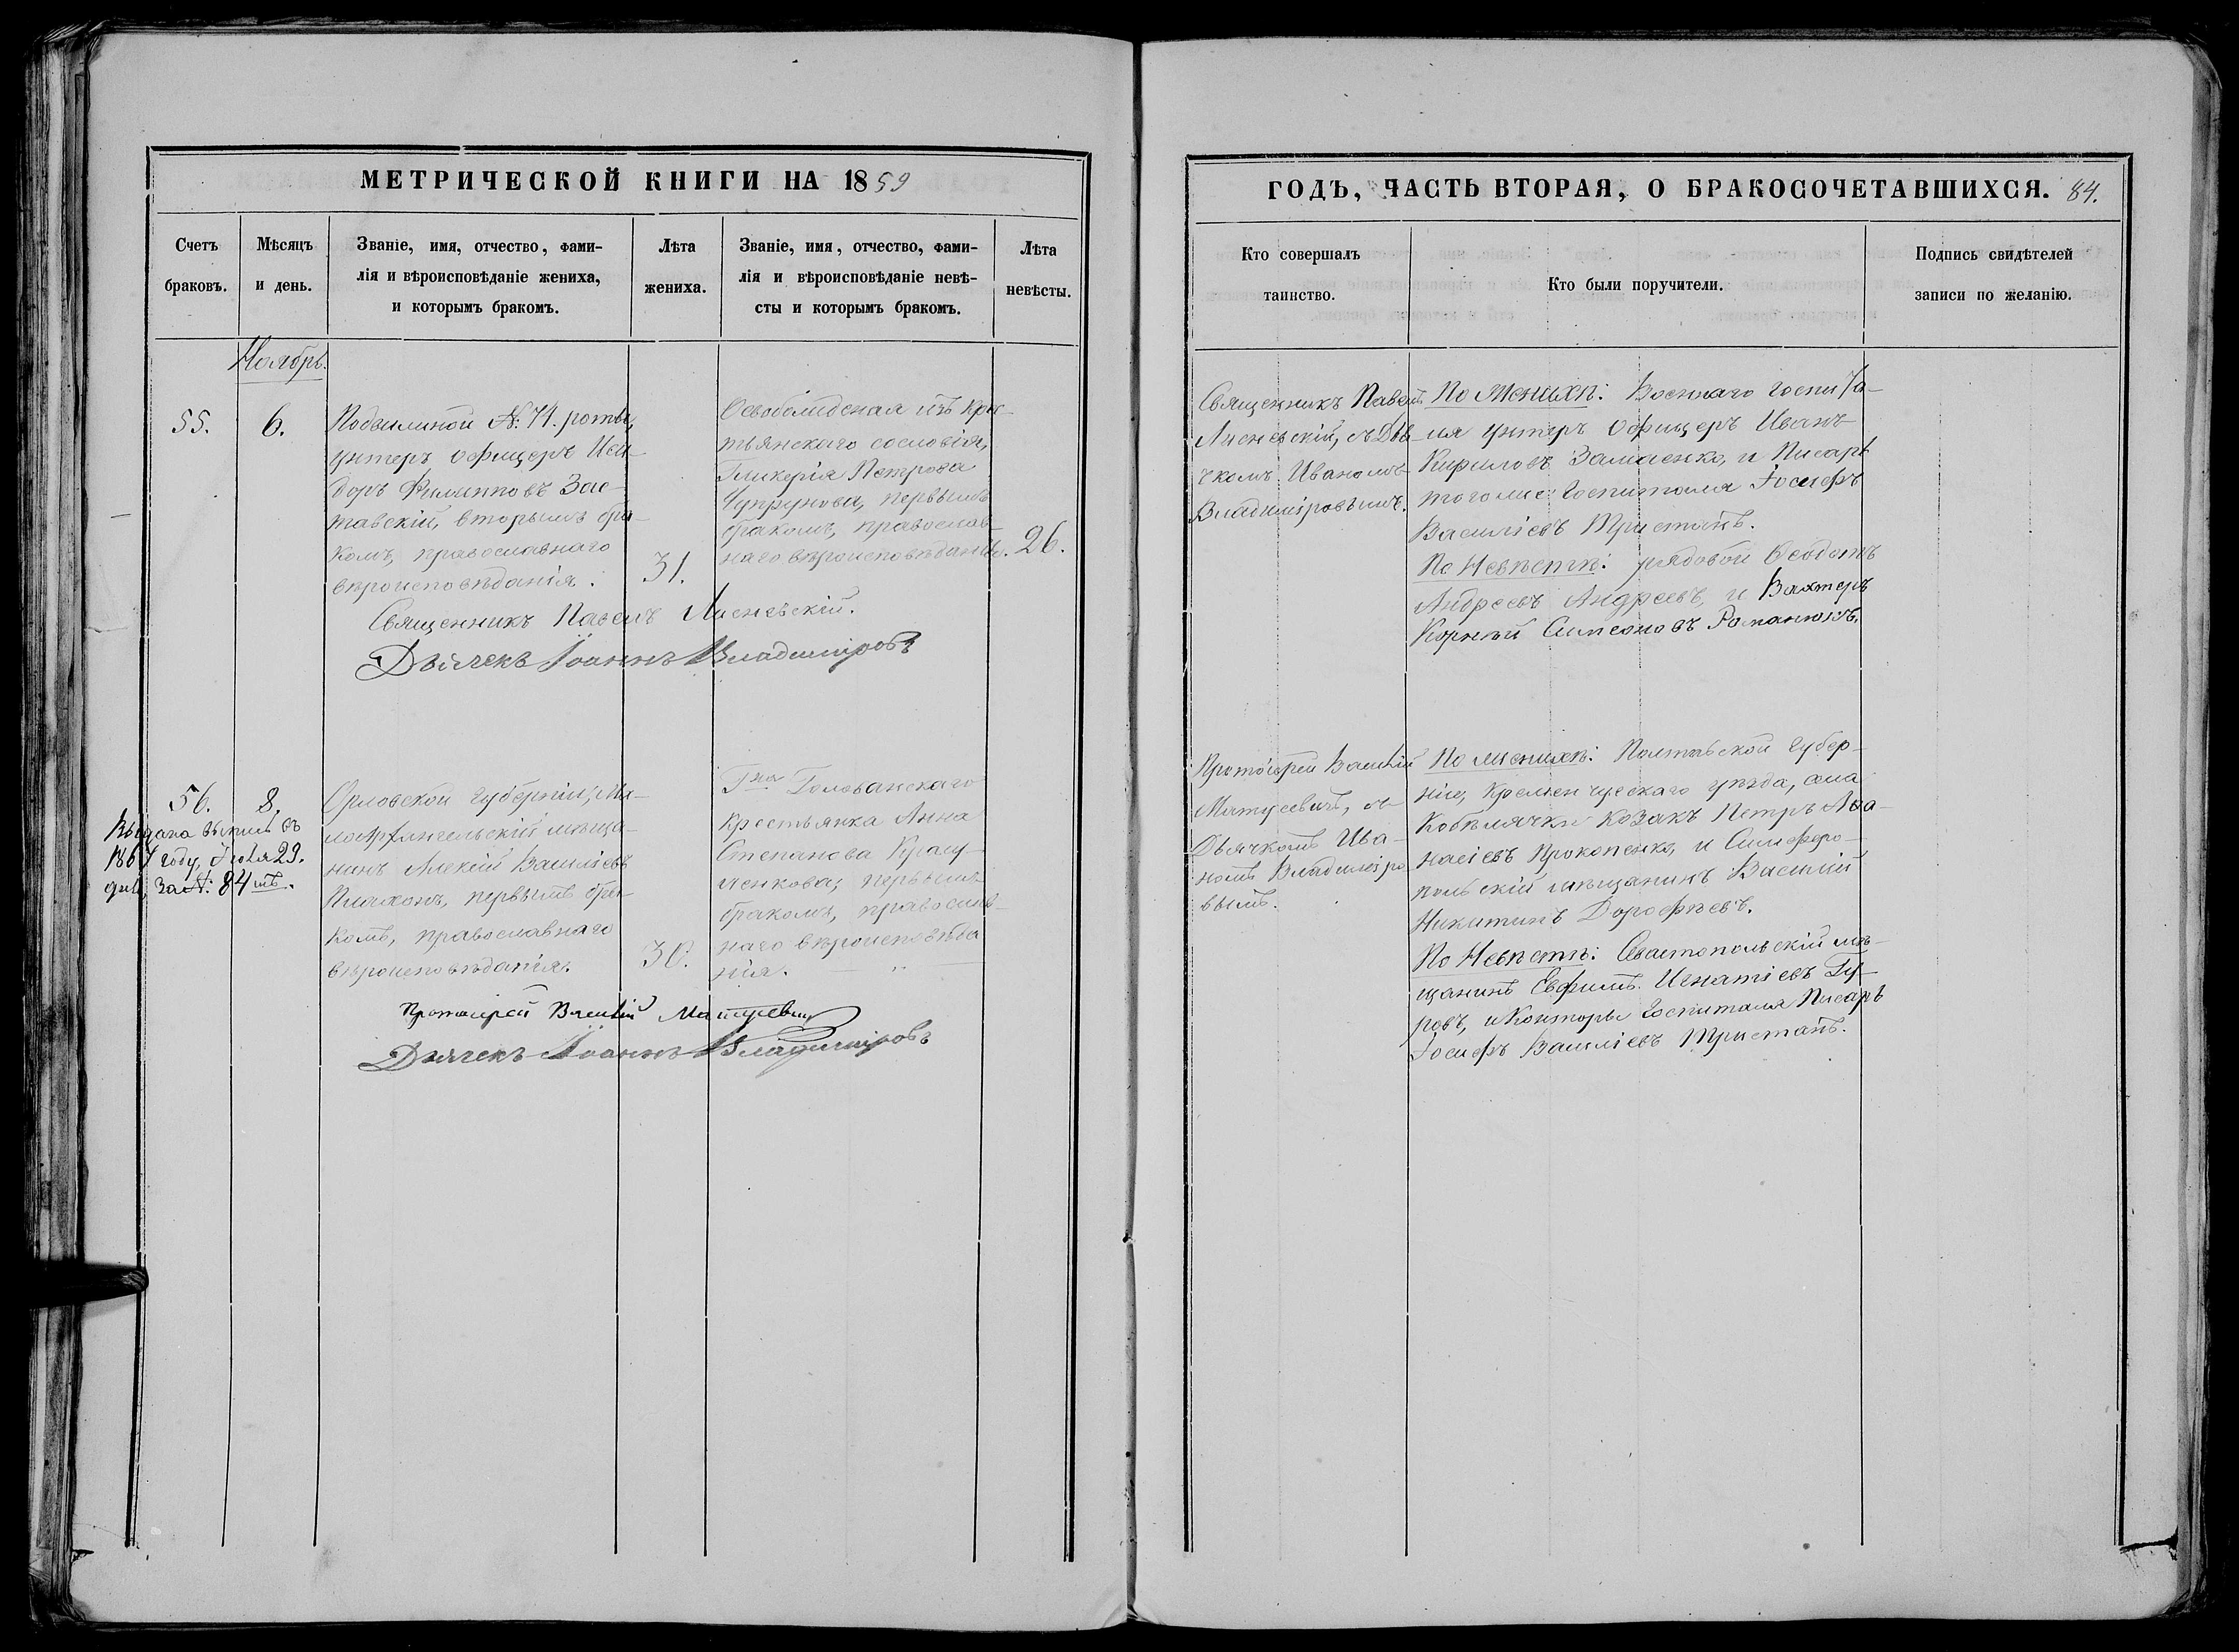 МЕТРИЧЕСКОЙ КНИГИ НА 1859
Счетъ браковъ.
Мѣсяцъ и день.
Званіе, имя, отчество, фами-
лія и вѣроисповѣданіе жениха,
и которымъ бракомъ.
Лѣта жениха.
Званіе, имя, отчество, фами-
лія и вѣроисповѣданіе невѣ-
сты и которымъ бракомъ.
Лѣта невѣсты.
Ноябрь.
55.
6.
Подвижной №: 74. роты,
унтеръ офицеръ Иси-
доръ Филипповъ Зас-
тавскій, вторымъ бра-
комъ, православнаго
вѣроисповѣданія.
31.
Освобожденая изъ крес-
тьянскаго сословія,
Гликерія Петрова
Чупрунова, первымъ
бракомъ, православ-
наго вѣроисповѣданія.
26.
Священникъ Павелъ Лисневскій.
Дьячекъ Іоаннъ Владиміровъ
56.
8.
Выдана выпись въ
1867 году, Іюля 29.
дня, за №: 84мъ.
Орловской губерніи, Ма-
лоархангельскій мѣща-
нинъ Алексій Василіевъ
Плахонъ, первымъ бра-
комъ, православнаго
вѣроисповѣданія.
30.
Гна Голованскаго
крестьянка Анна
Степанова
первымъ
бракомъ, православ-
наго вѣроисповѣда
нія. „
Протоіерей Василій Матусевичъ
Дьячекъ Іоаннъ Владиміровъ
ГОДЪ, ЧАСТЬ ВТОРАЯ, О БРАКОСОЧЕТАВШИХСЯ. 84.
Кто совершалъ
таинство.
Кто были поручители.
Подпись свидѣтелей
записи по желанію.
Священникъ Павелъ
Лисневскій, съ Дья-
чкомъ Иваномъ
Владиміровымъ.
По Женихѣ: Военнаго госпита-
ля унтеръ офицеръ Иванъ
Кириловъ и Писарь
тогоже госпиталя Іосифъ
Василіевъ Тристанъ.
По Невѣстѣ: рядовой Ѳеодотъ
Андреевъ Андреевъ, и Вахтеръ
Корнѣй Симеоновъ Романюкъ.
Протоіерей Василій
Матусевичъ, съ
Дьячкомъ Ива-
номъ Владиміро
вымъ.
По женихѣ: Полтавской губер-
ніи, Кременчугскаго уѣзда, села
Кобелячки Козакъ Петръ Аѳа-
насіевъ Прокопенко, и Симферо-
польскій мѣщанинъ Василій
Никитинъ Дорофѣевъ.
По Невѣстѣ: Севастопольскій мѣ-
щанинъ Евфимъ Игнатіевъ Гу-
ровъ, и Конторы госпиталя Писарь
Іосифъ Василіевъ Тристанъ.